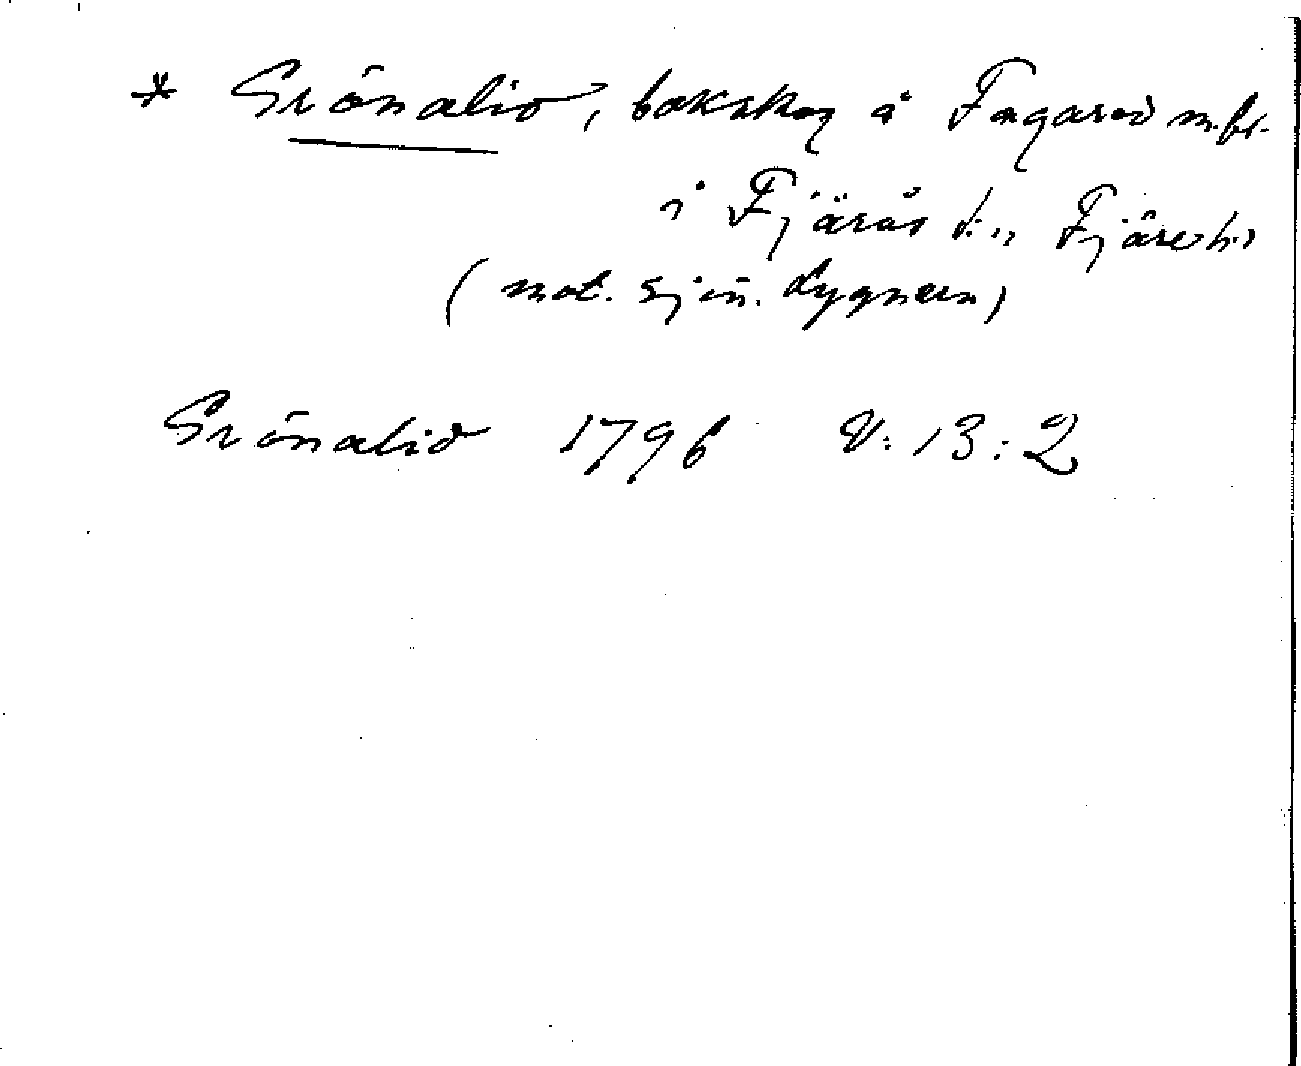 * Grönalid, bokskog å Fagared m.fl.
i Fjärås s:n Fjäre h:d
(mot. sjön. Lygnern)
Grönalid 1796 V:13:2